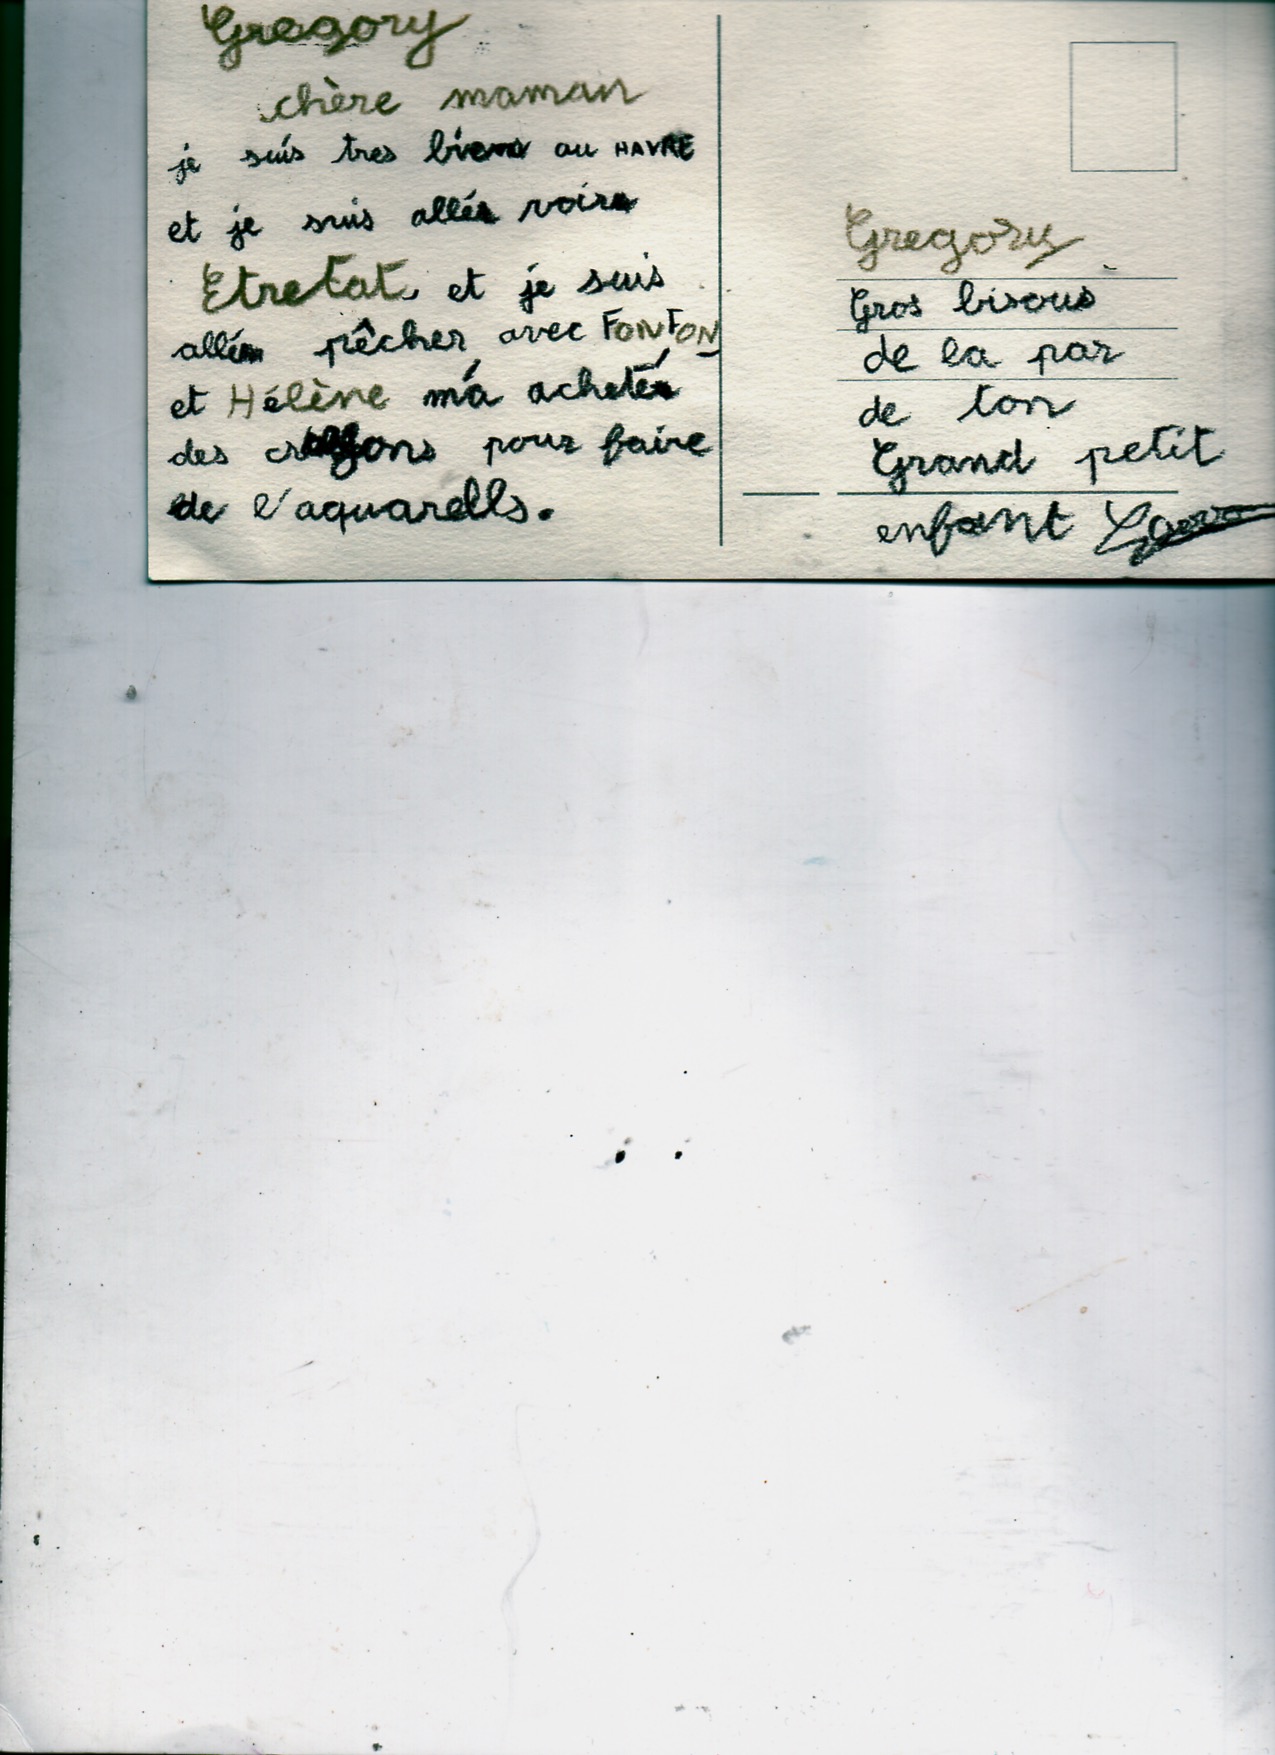 Gregory
chère maman
je suis tres bien au HAVRE
et je suis allé voir
Etretat et je suis
allé pêcher avec TONTON
et Hélène m'a acheté
des crayons pour faire
de l'aquarells.
Gregory
Gros bisous
de la par
de ton
Grand petit
enfant